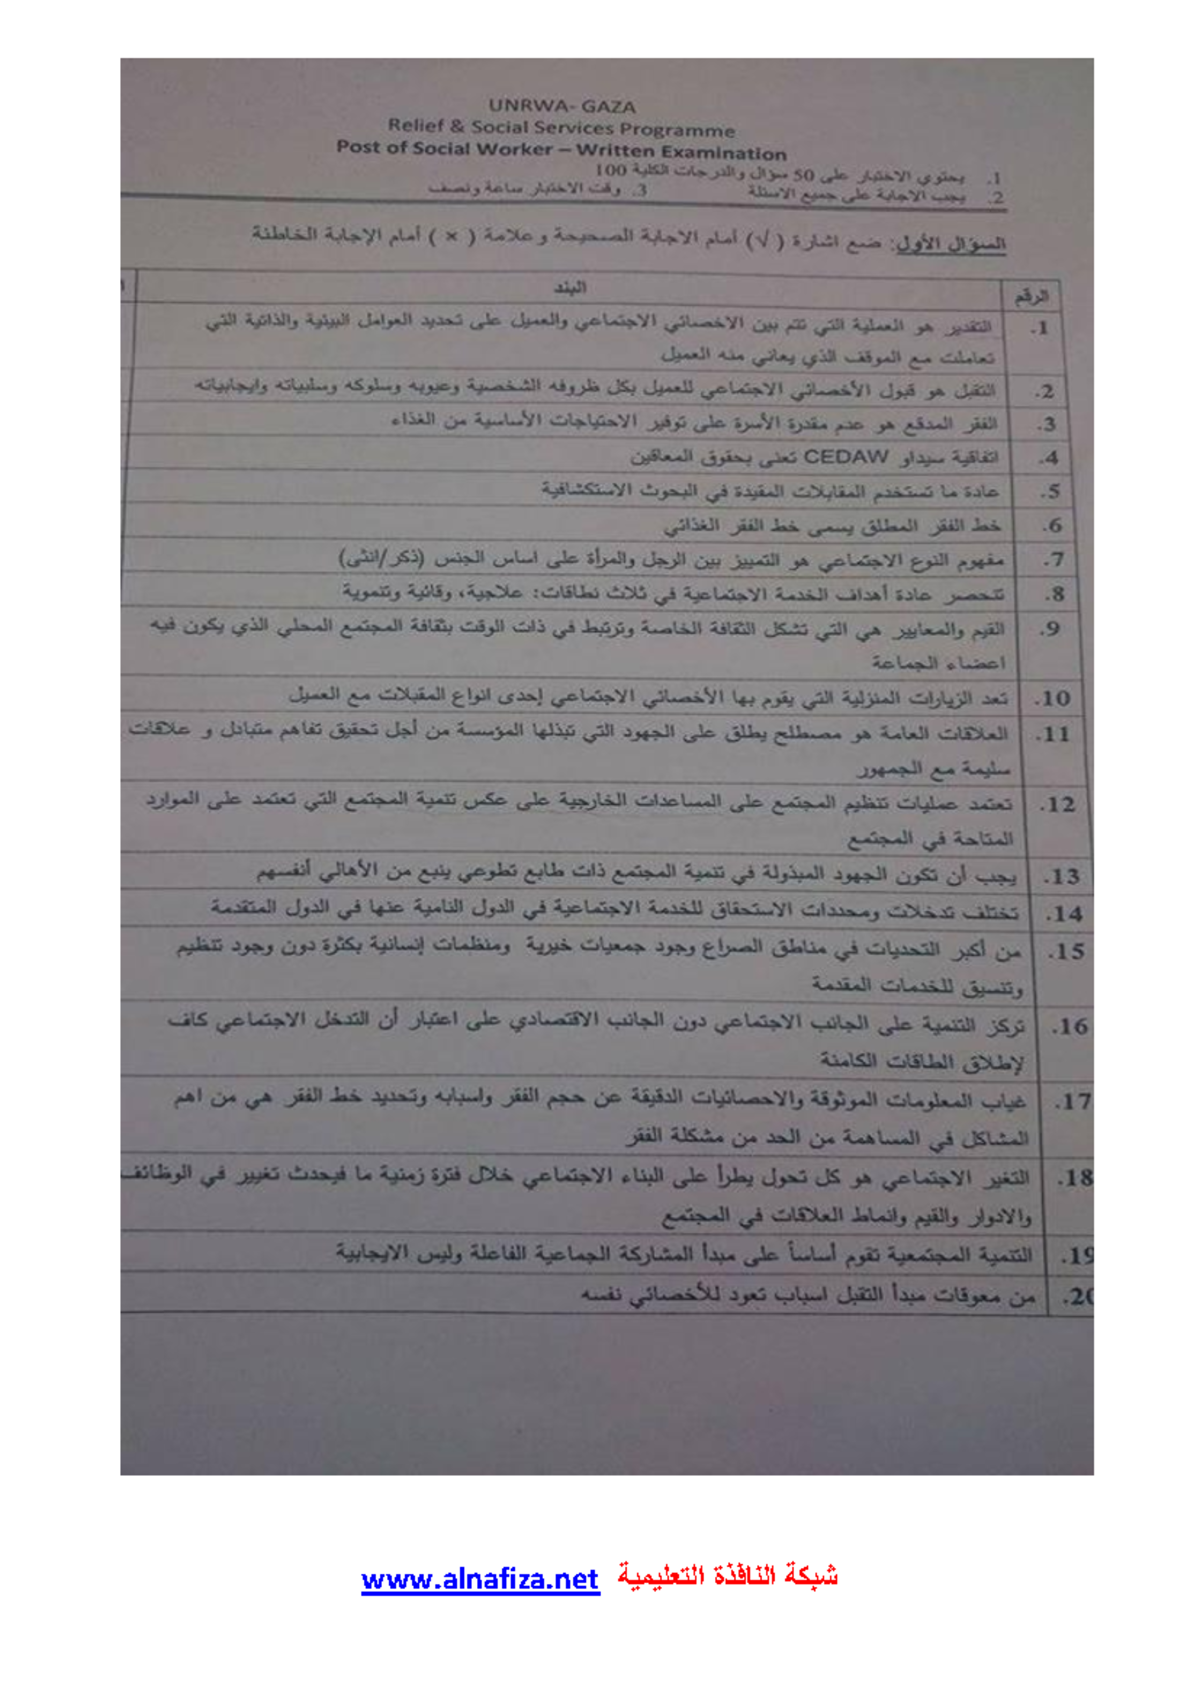 UNRWA- GAZA
Relief & Social Services Programme
Post of Social Worker – Written Examination
1. يحتوي الاختبار على 50 سؤال والدرجات الكلية 100
2. يجب الاجابة على جميع الاسئلة 3. وقت الاختبار ساعة ونصف
السؤال الأول: ضع اشارة ( √ ) أمام الاجابة الصحيحة وعلامة ( × ) أمام الإجابة الخاطئة
الرقم البند
1. التقدير هو العملية التي تتم بين الاخصائي الاجتماعي والعميل على تحديد العوامل البيئية والذاتية التي
تعاملت مع الموقف الذي يعاني منه العميل
2. التقبل هو قبول الأخصائي الاجتماعي للعميل بكل ظروفه الشخصية وعيوبه وسلوكه وسلبياته وايجابياته
3. الفقر المدقع هو عدم مقدرة الأسرة على توفير الاحتياجات الأساسية من الغذاء
4. اتفاقية سيداو CEDAW تعنى بحقوق المعاقين
5. عادة ما تستخدم المقابلات المقيدة في البحوث الاستكشافية
6. خط الفقر المطلق يسمى خط الفقر الغذائي
7. مفهوم النوع الاجتماعي هو التمييز بين الرجل والمرأة على اساس الجنس (ذكر/انثى)
8. تنحصر عادة أهداف الخدمة الاجتماعية في ثلاث نطاقات: علاجية، وقائية وتنموية
9. القيم والمعايير هي التي تشكل الثقافة الخاصة وترتبط في ذات الوقت بثقافة المجتمع المحلي الذي يكون فيه
اعضاء الجماعة
10. تعد الزيارات المنزلية التي يقوم بها الأخصائي الاجتماعي إحدى انواع المقبلات مع العميل
11. العلاقات العامة هو مصطلح يطلق على الجهود التي تبذلها المؤسسة من أجل تحقيق تفاهم متبادل و علاقات
سليمة مع الجمهور
12. تعتمد عمليات تنظيم المجتمع على المساعدات الخارجية على عكس تنمية المجتمع التي تعتمد على الموارد
المتاحة في المجتمع
13. يجب أن تكون الجهود المبذولة في تنمية المجتمع ذات طابع تطوعي ينبع من الأهالي أنفسهم
14. تختلف تدخلات ومحددات الاستحقاق للخدمة الاجتماعية في الدول النامية عنها في الدول المتقدمة
15. من أكبر التحديات في مناطق الصراع وجود جمعيات خيرية ومنظمات إنسانية بكثرة دون وجود تنظيم
وتنسيق للخدمات المقدمة
16. تركز التنمية على الجانب الاجتماعي دون الجانب الاقتصادي على اعتبار أن التدخل الاجتماعي كاف
لإطلاق الطاقات الكامنة
17. غياب المعلومات الموثوقة والاحصائيات الدقيقة عن حجم الفقر واسبابه وتحديد خط الفقر هي من اهم
المشاكل في المساهمة من الحد من مشكلة الفقر
18. التغير الاجتماعي هو كل تحول يطرأ على البناء الاجتماعي خلال فترة زمنية ما فيحدث تغيير في الوظائف
والادوار والقيم وانماط العلاقات في المجتمع
19. التنمية المجتمعية تقوم أساساً على مبدأ المشاركة الجماعية الفاعلة وليس الايجابية
20. من معوقات مبدأ التقبل اسباب تعود للأخصائي نفسه
شبكة النافذة التعليمية www.alnafiza.net